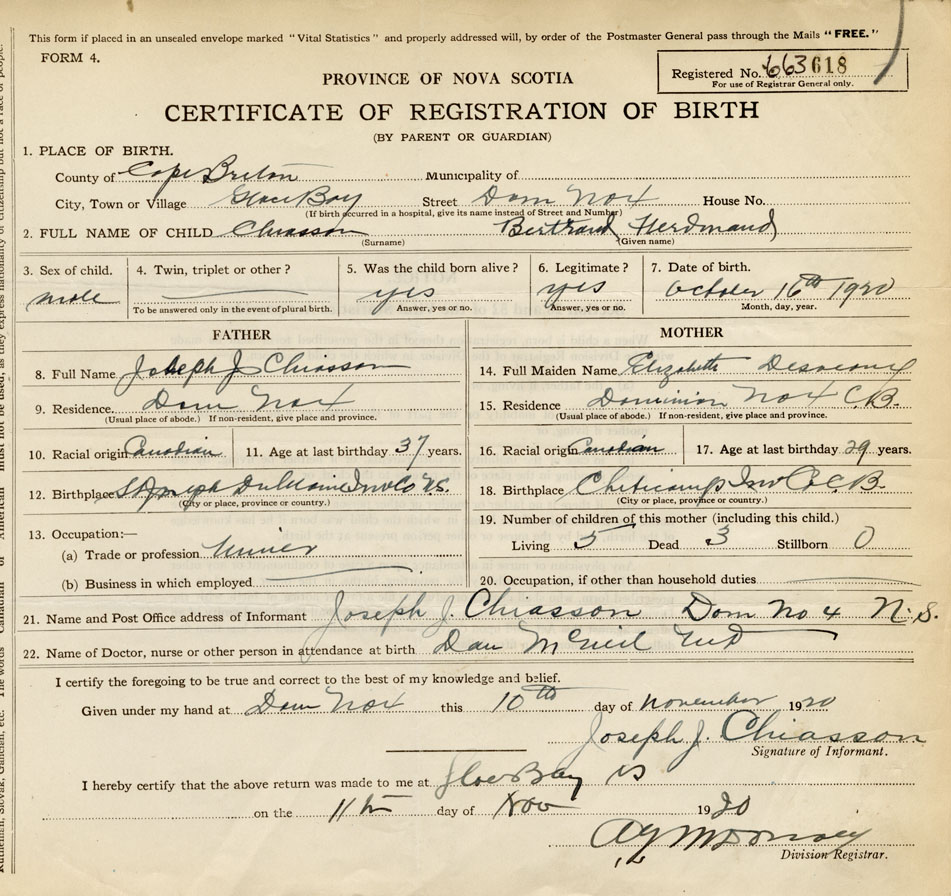 This form if placed in an unsealed envelope marked "Vital Statistics" and properly addressed will, by order of the Postmaster General pass through the Mails "FREE."
FORM 4.
Registered No. 663618
For use of Registrar General only.
PROVINCE OF NOVA SCOTIA
CERTIFICATE OF REGISTRATION OF BIRTH
(BY PARENT OR GUARDIAN)
1. PLACE OF BIRTH.
County of Cape Breton Municipality of
City, Town or Village Glace Bay Street Dom No 4 House No.
(If birth occurred in a hospital, give its name instead of Street and Number)
2. FULL NAME OF CHILD Chiasson Bertrand Herdmand
(Surname) (Given name)
3. Sex of child. 4. Twin, triplet or other? 5. Was the child born alive? 6. Legitimate? 7. Date of birth.
male yes yes October 16th 1920
To be answered only in the event of plural birth. Answer, yes or no. Answer, yes or no. Month, day, year.
FATHER MOTHER
8. Full Name Joseph J Chiasson 14. Full Maiden Name Elizabeth
9. Residence. Dom No 4 15. Residence Dominion No 4 C.B.
(Usual place of abode.) If non-resident, give place and province. (Usual place of abode.) If non-resident, give place and province.
10. Racial origin Canadian 11. Age at last birthday 37 years. 16. Racial origin Canadian 17. Age at last birthday 29 years.
12. Birthplace Inv Co NS. 18. Birthplace Cheticamp Inv Co C.B.
(City or place, province or country.) (City or place, province or country.)
13. Occupation:— 19. Number of children of this mother (including this child.)
(a) Trade or profession Miner Living 5 Dead 3 Stillborn 0
(b) Business in which employed 20. Occupation, if other than household duties
21. Name and Post Office address of Informant Joseph J. Chiasson Dom No 4 N.S.
22. Name of Doctor, nurse or other person in attendance at birth Dan McNeil MD
I certify the foregoing to be true and correct to the best of my knowledge and belief.
Given under my hand at Dom No 4 this 10th day of November 1920
Joseph J. Chiasson
Signature of Informant.
I hereby certify that the above return was made to me at Glace Bay
on the 11th day of Nov 1920
Division Registrar.